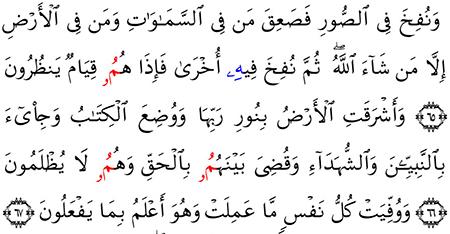 وَنُفِخَ فِى ٱلصُّورِ فَصَعِقَ مَن فِى ٱلسَّمَٰوَٰتِ وَمَن فِى ٱلْأَرْضِ
إِلَّا مَن شَآءَ ٱللَّهُ ۖ ثُمَّ نُفِخَ فِيهِۦ أُخْرَىٰ فَإِذَا هُمُۥ قِيَامٌ يَنظُرُونَ
۝٦٥ وَأَشْرَقَتِ ٱلْأَرْضُ بِنُورِ رَبِّهَا وَوُضِعَ ٱلْكِتَٰبُ وَجِا۟ىٓءَ
بِٱلنَّبِيِّـۧنَ وَٱلشُّهَدَآءِ وَقُضِىَ بَيْنَهُمُۥ بِٱلْحَقِّ وَهُمُۥ لَا يُظْلَمُونَ
۝٦٦ وَوُفِّيَتْ كُلُّ نَفْسٍ مَّا عَمِلَتْ وَهُوَ أَعْلَمُ بِمَا يَفْعَلُونَ ۝٦٧